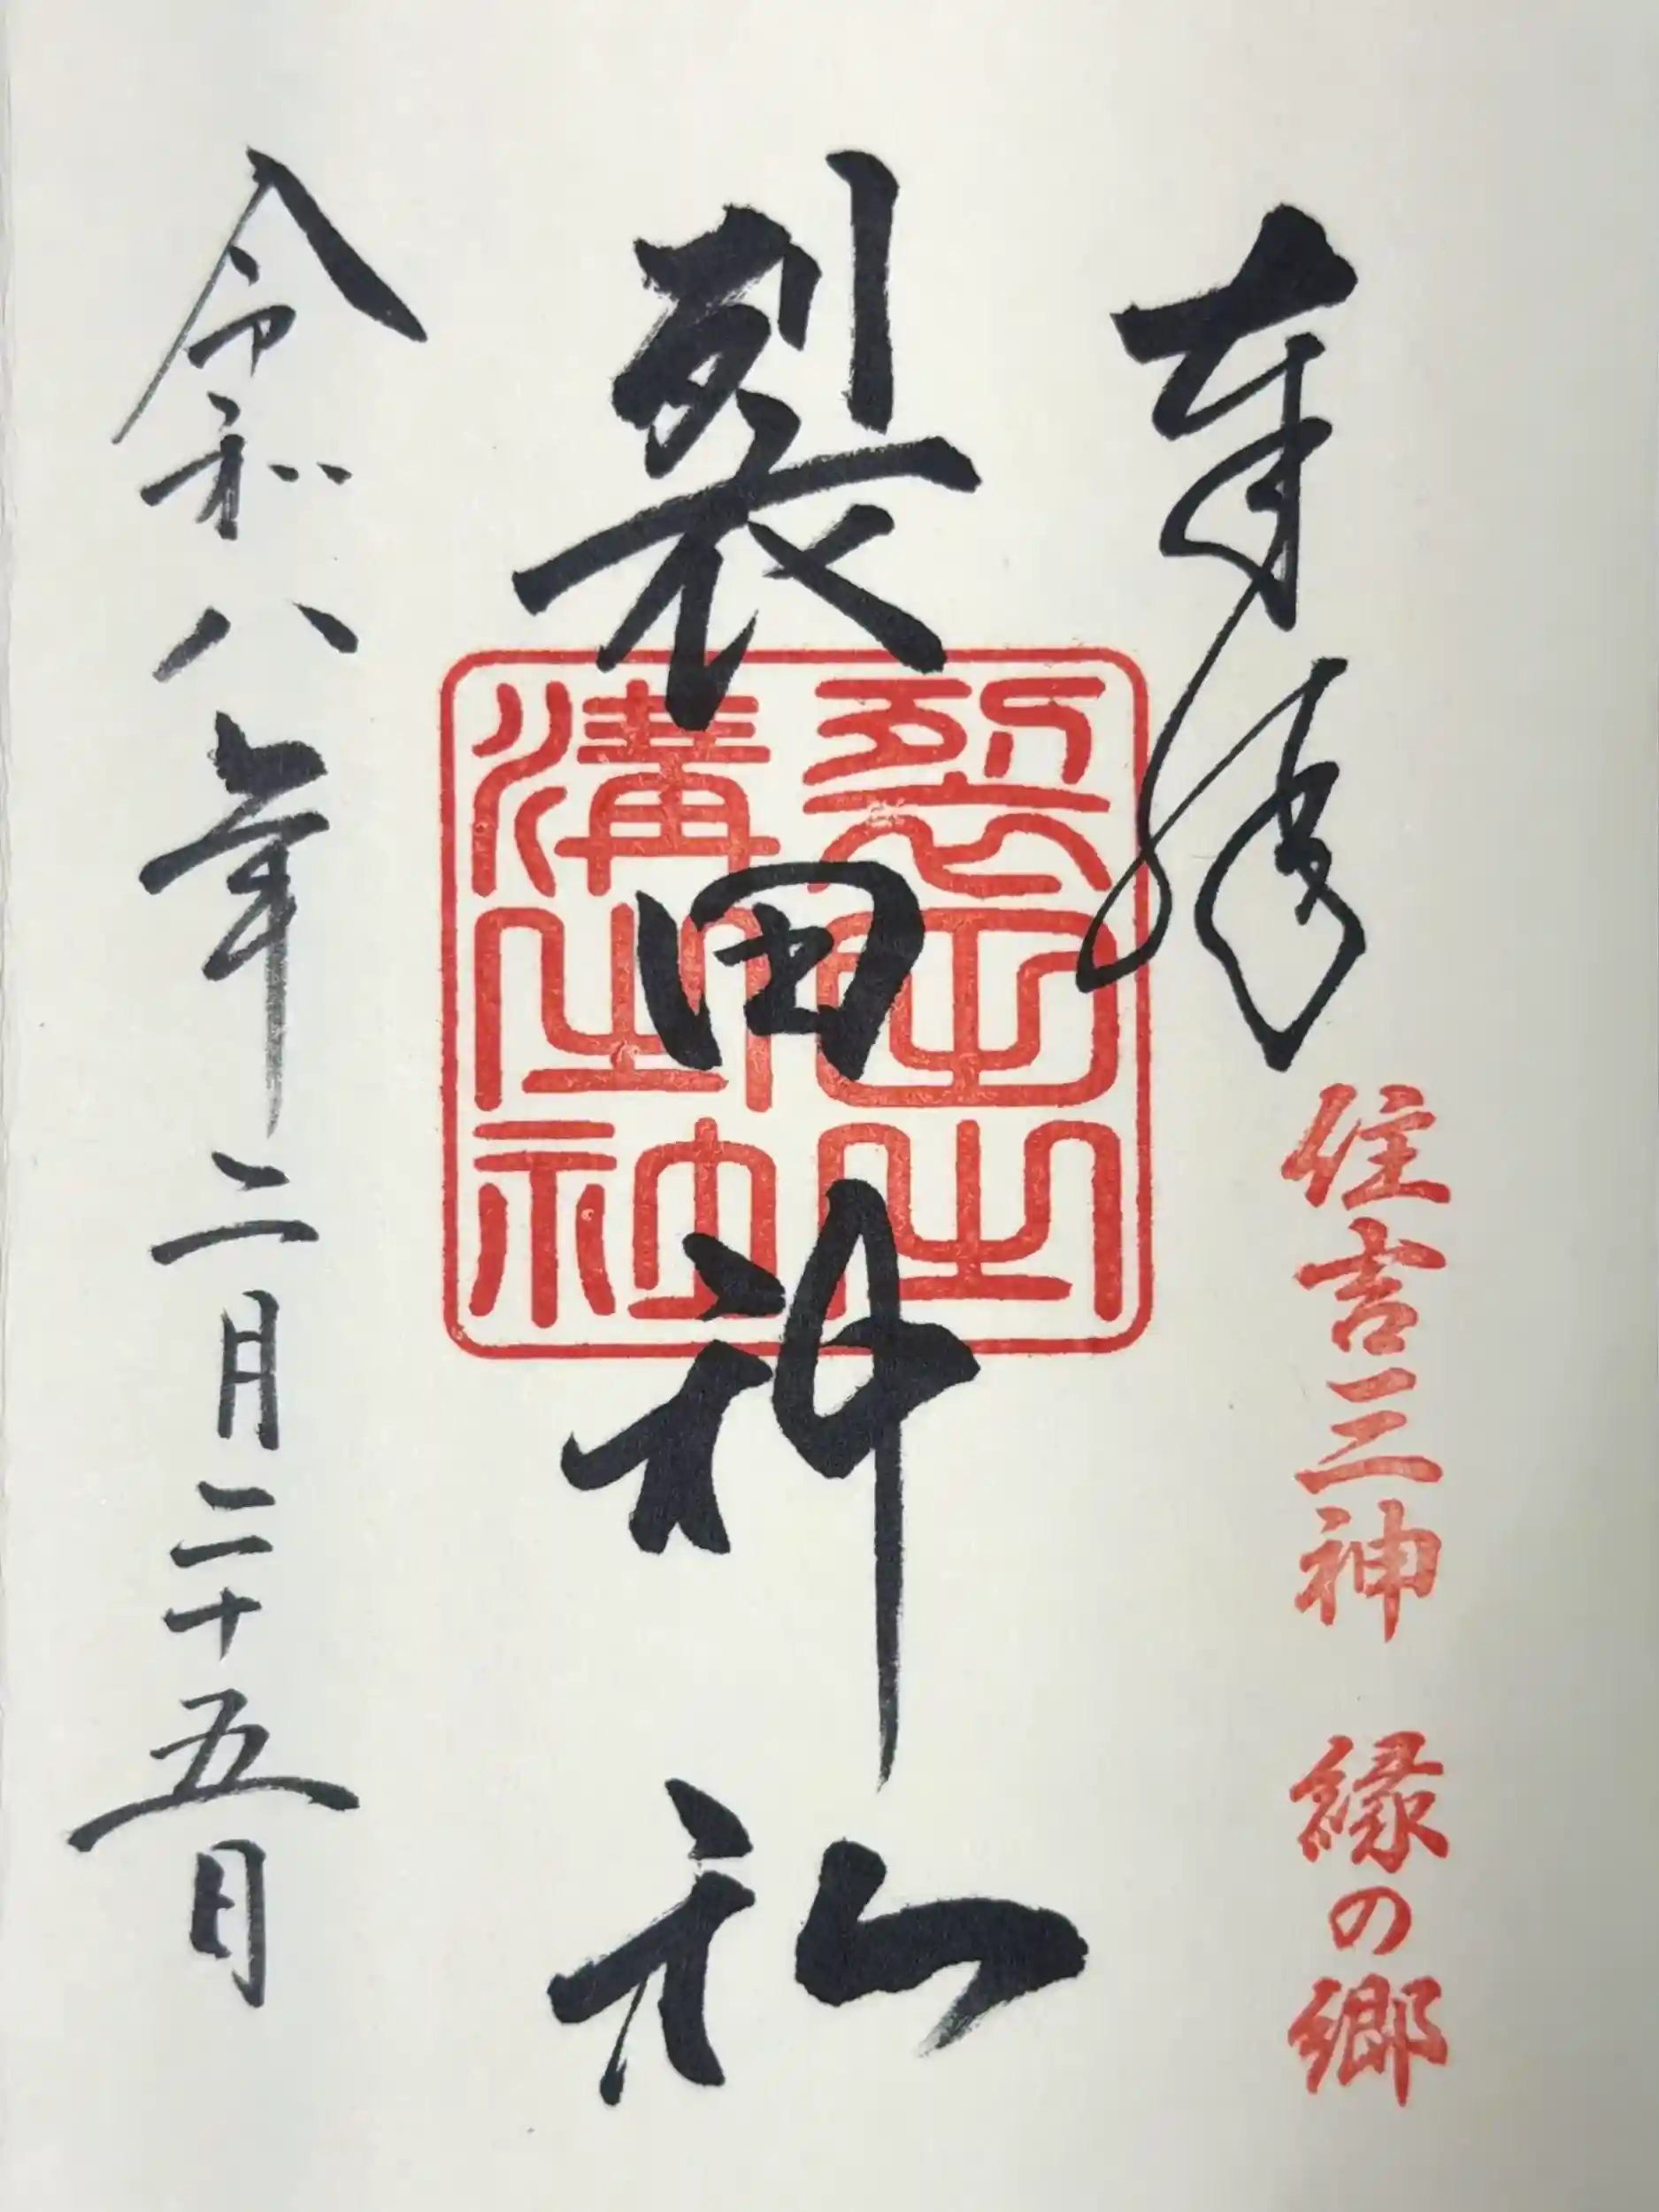 奉拝
住吉三神 縁の郷
裂田神社
令和八年二月二十五日